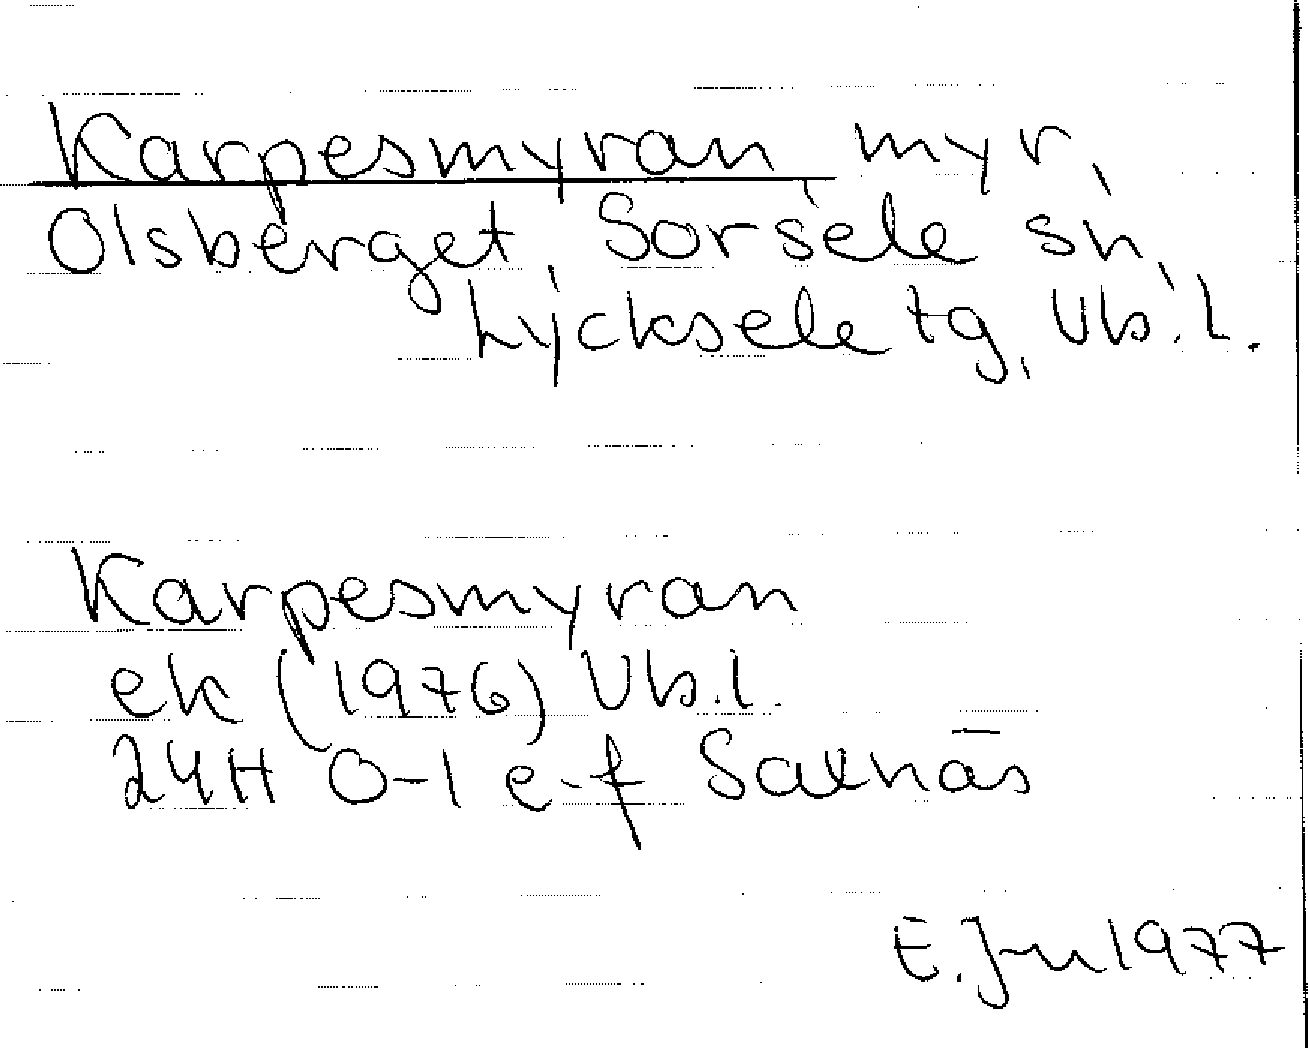 Karpesmyran, myr,
Olsberget, Sorsele sn,
Lycksele tg, Vb.l.
Karpesmyran
ek (1976) Vb.l.
24H 0-1 e-f Saxnäs
1977